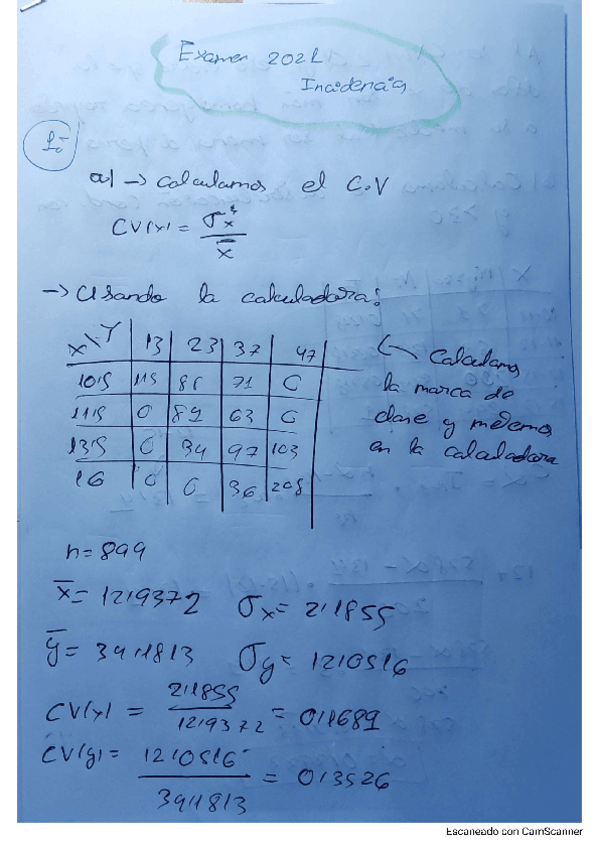 Examen 2021
Incidencias
1.-
a) → Calculamos el C.V
CV(x) = σx / x̄
→ Usando la calculadora:
X\Y | 13 | 23 | 37 | 47
10'5 | 115 | 81 | 71 | 0
11'5 | 0 | 89 | 63 | 0
13'5 | 0 | 34 | 97 | 103
16 | 0 | 0 | 36 | 205
Calculamos
la marca de
clase y metemos
en la calculadora
n = 899
x̄ = 12'9372 σx = 2'1855
ȳ = 34'1813 σy = 12'0516
CV(x) = 2'1855 / 12'9372 = 0'1689
CV(y) = 12'0516 / 34'1813 = 0'3526
Escaneado con CamScanner